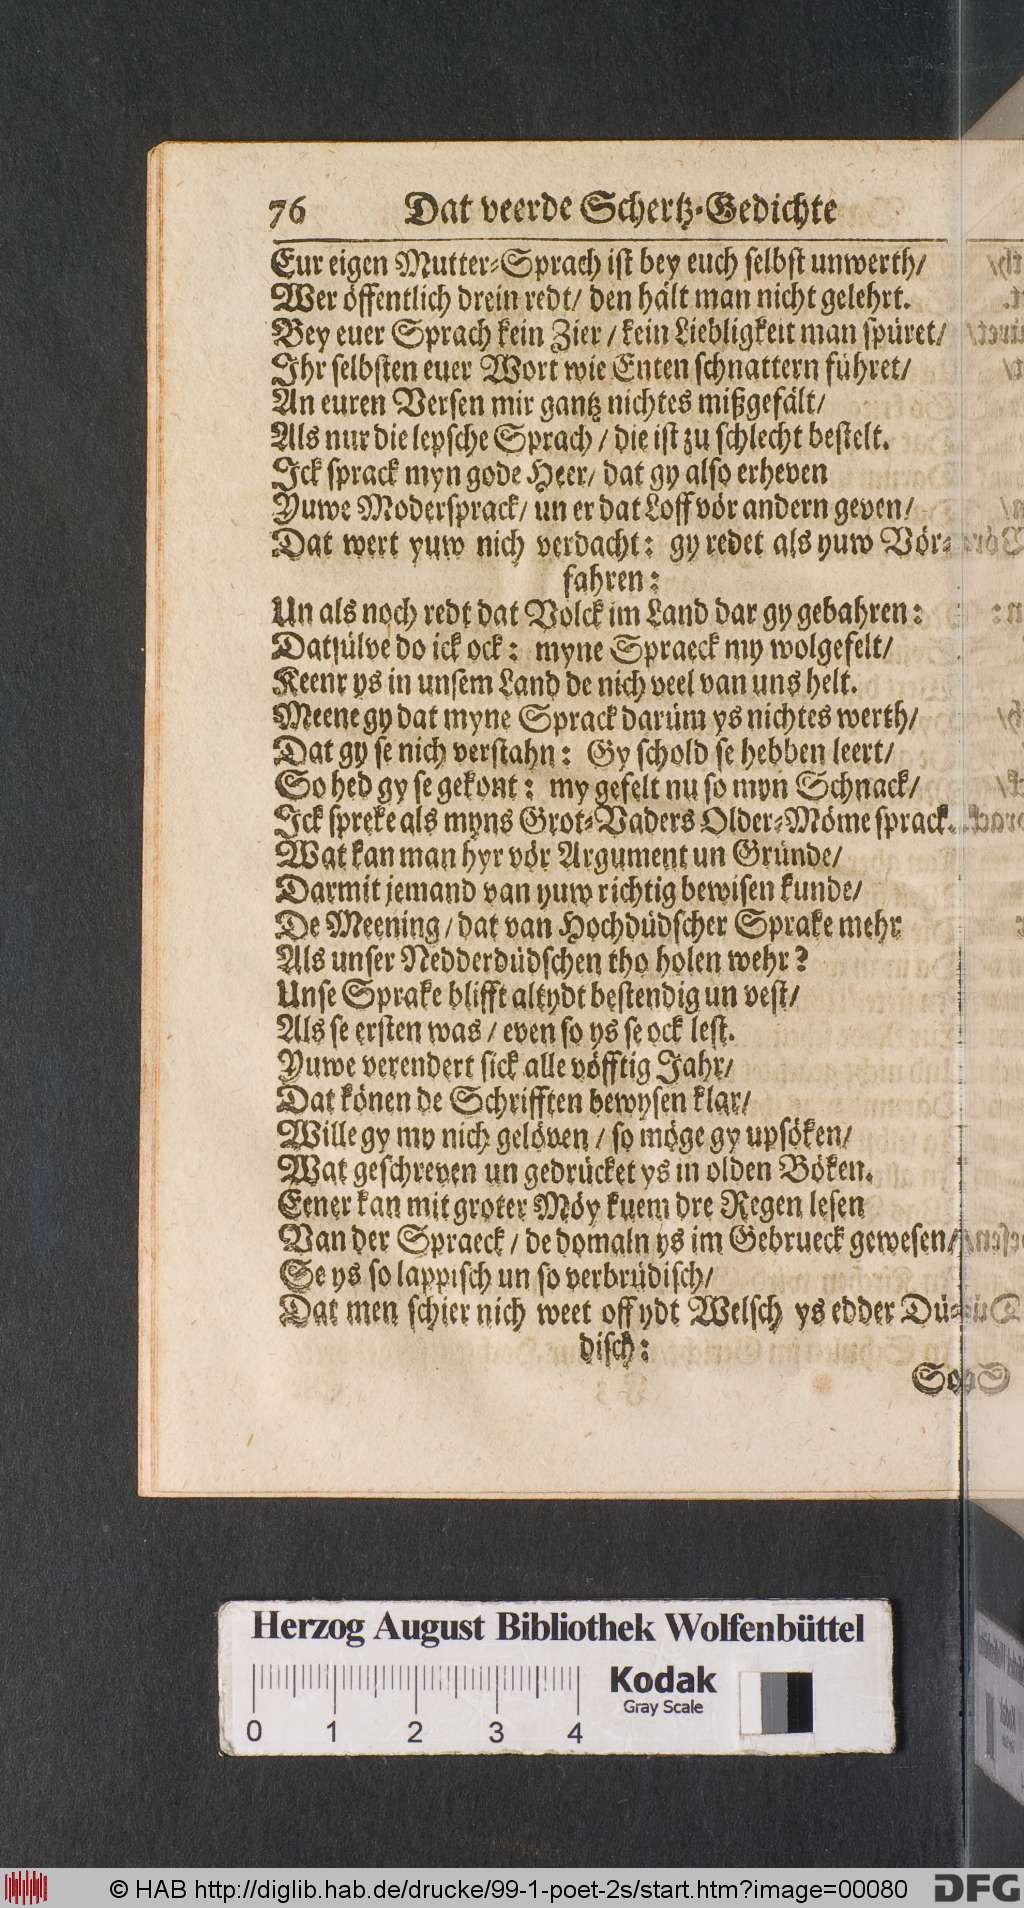 76 Dat veerde Schertz-Gedichte
Eur eigen Mutter-Sprach ist bey euch selbst unwerth/
Wer öffentlich drein redt/ den hält man nicht gelehrt.
Bey euer Sprach kein Zier/ kein Liebligkeit man spüret/
Ihr selbsten euer Wort wie Enten schnattern führet/
An euren Versen mir gantz nichtes mißgefält/
Als nur die lepsche Sprach/ die ist zu schlecht bestelt.
Ick sprack myn gode Heer/ dat gy also erheven
Yuwe Modersprack/ un er dat Loff vör andern geven/
Dat wert yuw nich verdacht: gy redet als yuw Vör-
fahren:
Un als noch redt dat Volck im Land dar gy gebahren:
Datsülve do ick ock: myne Spraeck my wolgefelt/
Keenr ys in unsem Land de nich veel van uns helt.
Meene gy dat myne Sprack darüm ys nichtes werth/
Dat gy se nich verstahn: Gy schold se hebben leert/
So hed gy se gekont: my gefelt nu so myn Schnack/
Ick spreke als myns Grot-Vaders Older-Möme sprack.
Wat kan man hyr vör Argument un Gründe/
Darmit jemand van yuw richtig bewisen kunde/
De Meening/ dat van Hochdüdscher Sprake mehr
Als unser Nedderdüdschen tho holen wehr?
Unse Sprake blifft altydt bestendig un vest/
Als se ersten was/ even so ys se ock lest.
Yuwe verendert sick alle vöfftig Jahr/
Dat könen de Schrifften bewysen klar/
Wille gy my nich gelöven/ so möge gy upsöken/
Wat geschreven un gedrücket ys in olden Böken.
Eener kan mit groter Möy kuem dre Regen lesen
Van der Spraeck/ de domaln ys im Gebrueck gewesen/
Se ys so lappisch un so verbrüdisch/
Dat men schier nich weet off ydt Welsch ys edder Dü-
disch:
Herzog August Bibliothek Wolfenbüttel
0 1 2 3 4
Kodak
Gray Scale
© HAB http://diglib.hab.de/drucke/99-1-poet-2s/start.htm?image=00080
DFG